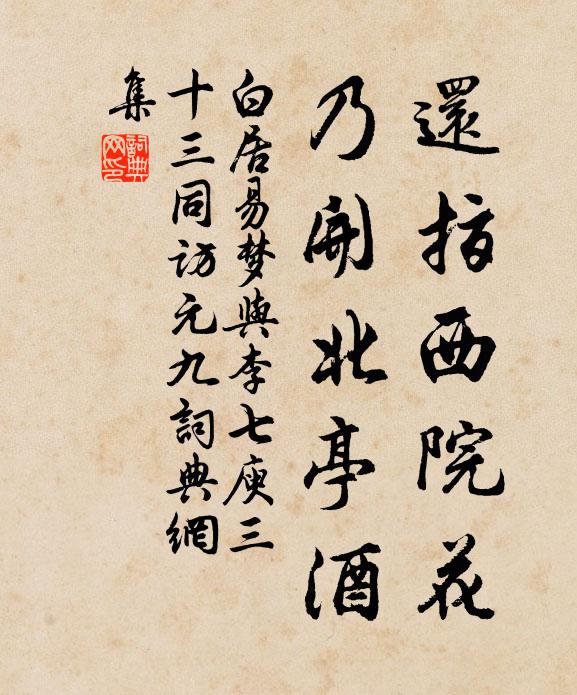 還指西院花
乃開北亭酒
白居易梦與李七庾三
十三同访元九詞典網
集
詞典網印